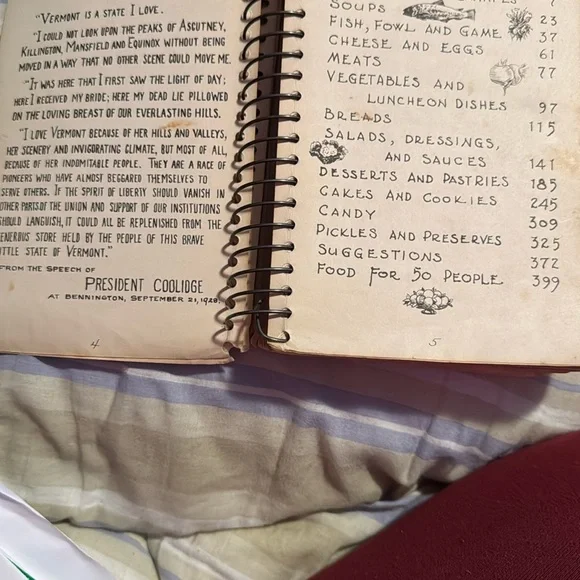 "VERMONT IS A STATE I LOVE.
"I COULD NOT LOOK UPON THE PEAKS OF ASCUTNEY,
KILLINGTON, MANSFIELD AND EQUINOX WITHOUT BEING
MOVED IN A WAY THAT NO OTHER SCENE COULD MOVE ME.
"IT WAS HERE THAT I FIRST SAW THE LIGHT OF DAY;
HERE I RECEIVED MY BRIDE; HERE MY DEAD LIE PILLOWED
ON THE LOVING BREAST OF OUR EVERLASTING HILLS.
"I LOVE VERMONT BECAUSE OF HER HILLS AND VALLEYS,
HER SCENERY AND INVIGORATING CLIMATE, BUT MOST OF ALL,
BECAUSE OF HER INDOMITABLE PEOPLE. THEY ARE A RACE OF
PIONEERS WHO HAVE ALMOST BEGGARED THEMSELVES TO
SERVE OTHERS. IF THE SPIRIT OF LIBERTY SHOULD VANISH IN
OTHER PARTS OF THE UNION AND SUPPORT OF OUR INSTITUTIONS
SHOULD LANGUISH, IT COULD ALL BE REPLENISHED FROM THE
GENEROUS STORE HELD BY THE PEOPLE OF THIS BRAVE
LITTLE STATE OF VERMONT."
FROM THE SPEECH OF
PRESIDENT COOLIDGE
AT BENNINGTON, SEPTEMBER 21, 1928.
4
7
SOUPS 23
FISH, FOWL AND GAME 37
CHEESE AND EGGS 61
MEATS 77
VEGETABLES AND
LUNCHEON DISHES 97
BREADS 115
SALADS, DRESSINGS,
AND SAUCES 141
DESSERTS AND PASTRIES 185
CAKES AND COOKIES 245
CANDY 309
PICKLES AND PRESERVES 325
SUGGESTIONS 372
FOOD FOR 50 PEOPLE 399
5